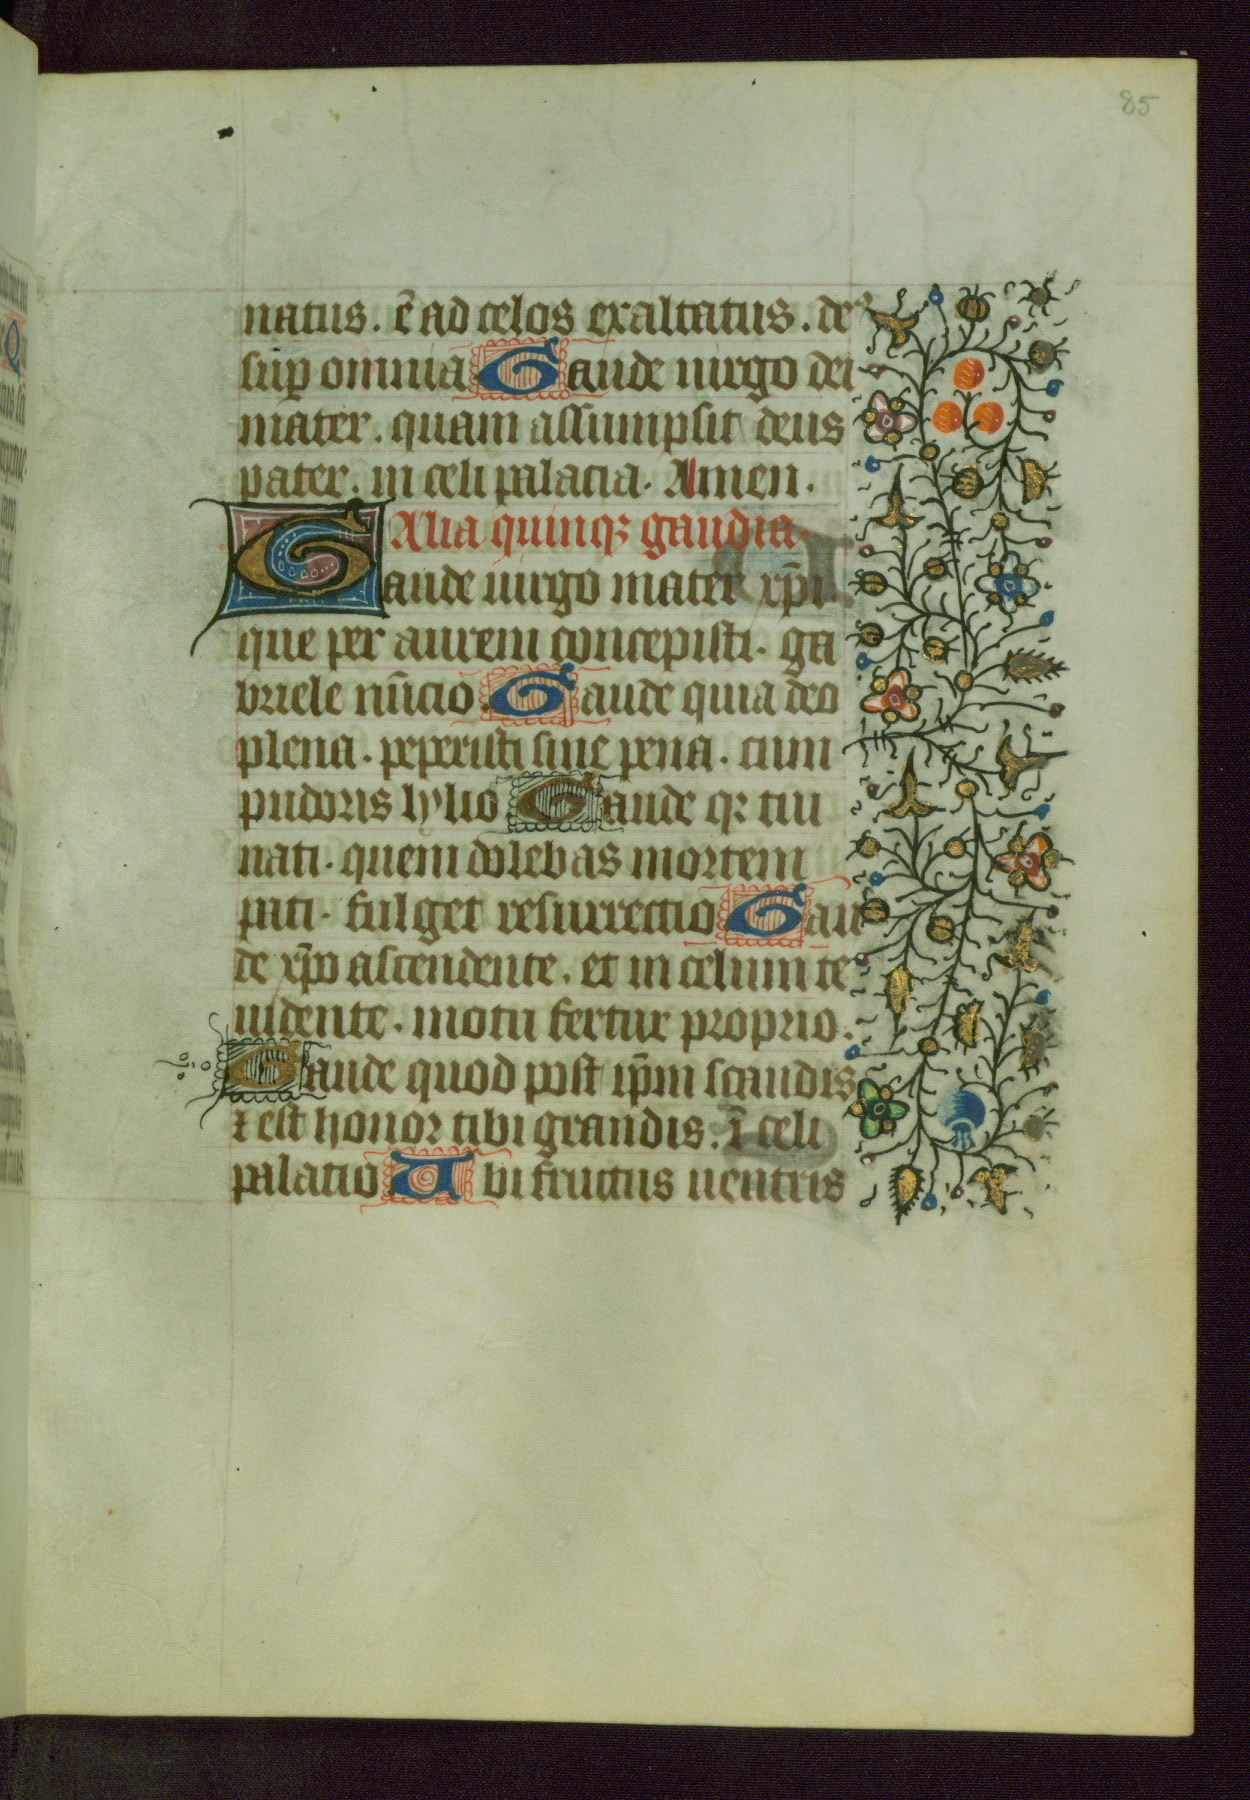 85
natus. ē ad celos exaltatus. deꝰ
suꝑ omnia Gaude uirgo dei
mater. quam assumpsit deus
pater. in celi palacia. Amen.
Alia quinqꝫ gaudia.
Gaude uirgo mater xp̄i
que per aurem concepisti. ga
briele nūcio Gaude quia deo
plena. peperisti sine pena. cum
pudoris lylio Gaude qꝛ tui
nati. quem dolebas mortem
pati. fulget resurrectio Gau
de xp̄o ascendente. et in celum te
uidente. motu fertur proprio.
Gaude quod post ip̄m scandis
⁊ est honor tibi grandis. ī celi
palacio Ubi fructus uentris